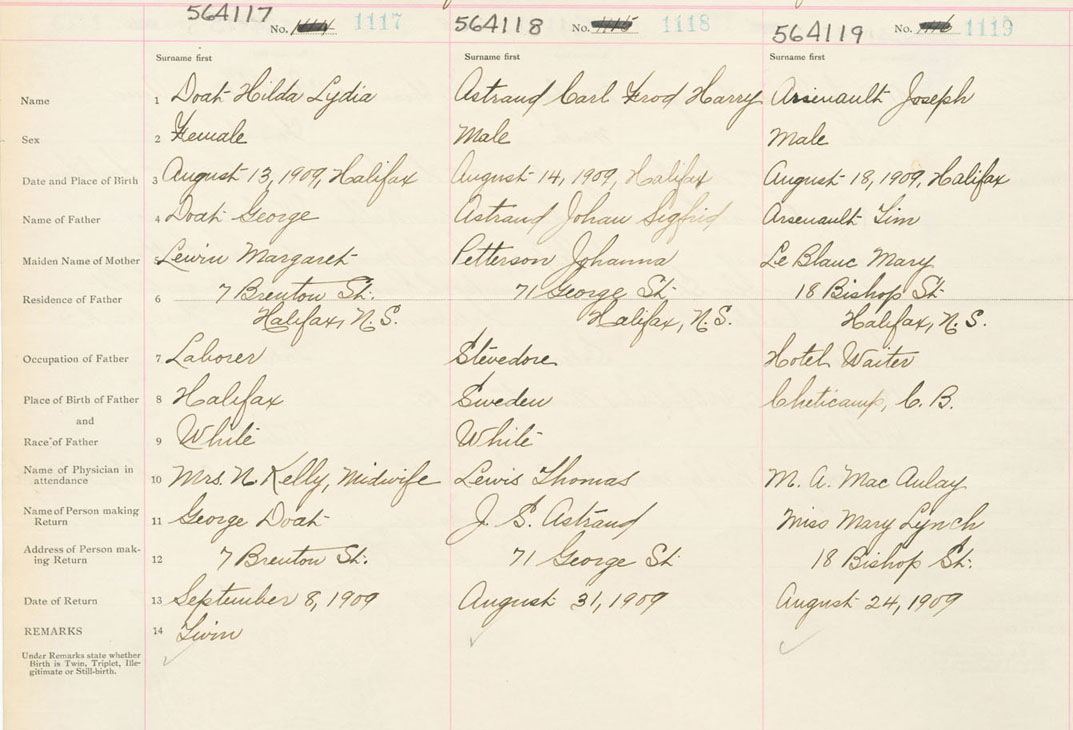 564117 No. 1117 564118 No. 1118 564119 No. 1119
Surname first Surname first Surname first
Name 1 Doat Hilda Lydia Astrand Carl Frod Harry Arsenault Joseph
Sex 2 Female Male Male
Date and Place of Birth 3 August 13, 1909, Halifax August 14, 1909, Halifax August 18, 1909, Halifax
Name of Father 4 Doat George Astrand Johan Sigfrid Arsenault Tim
Maiden Name of Mother 5 Lewin Margaret Petterson Johanna Le Blanc Mary
Residence of Father 6 7 Brenton St. 71 George St 18 Bishop St
Halifax, N.S. Halifax, N.S. Halifax, N.S.
Occupation of Father 7 Laborer Stevedore Hotel Waiter
Place of Birth of Father 8 Halifax Sweden Cheticamp, C.B.
and
Race of Father 9 White White
Name of Physician in
attendance 10 Mrs. N. Kelly, Midwife Lewis Thomas M. A. Mac Aulay
Name of Person making
Return 11 George Doat J. S. Astrand Miss Mary Lynch
Address of Person mak-
ing Return 12 7 Brenton St. 71 George St 18 Bishop St.
Date of Return 13 September 8, 1909 August 31, 1909 August 24, 1909
REMARKS 14 Twin
Under Remarks state whether
Birth is Twin, Triplet, Ille-
gitimate or Still-birth.